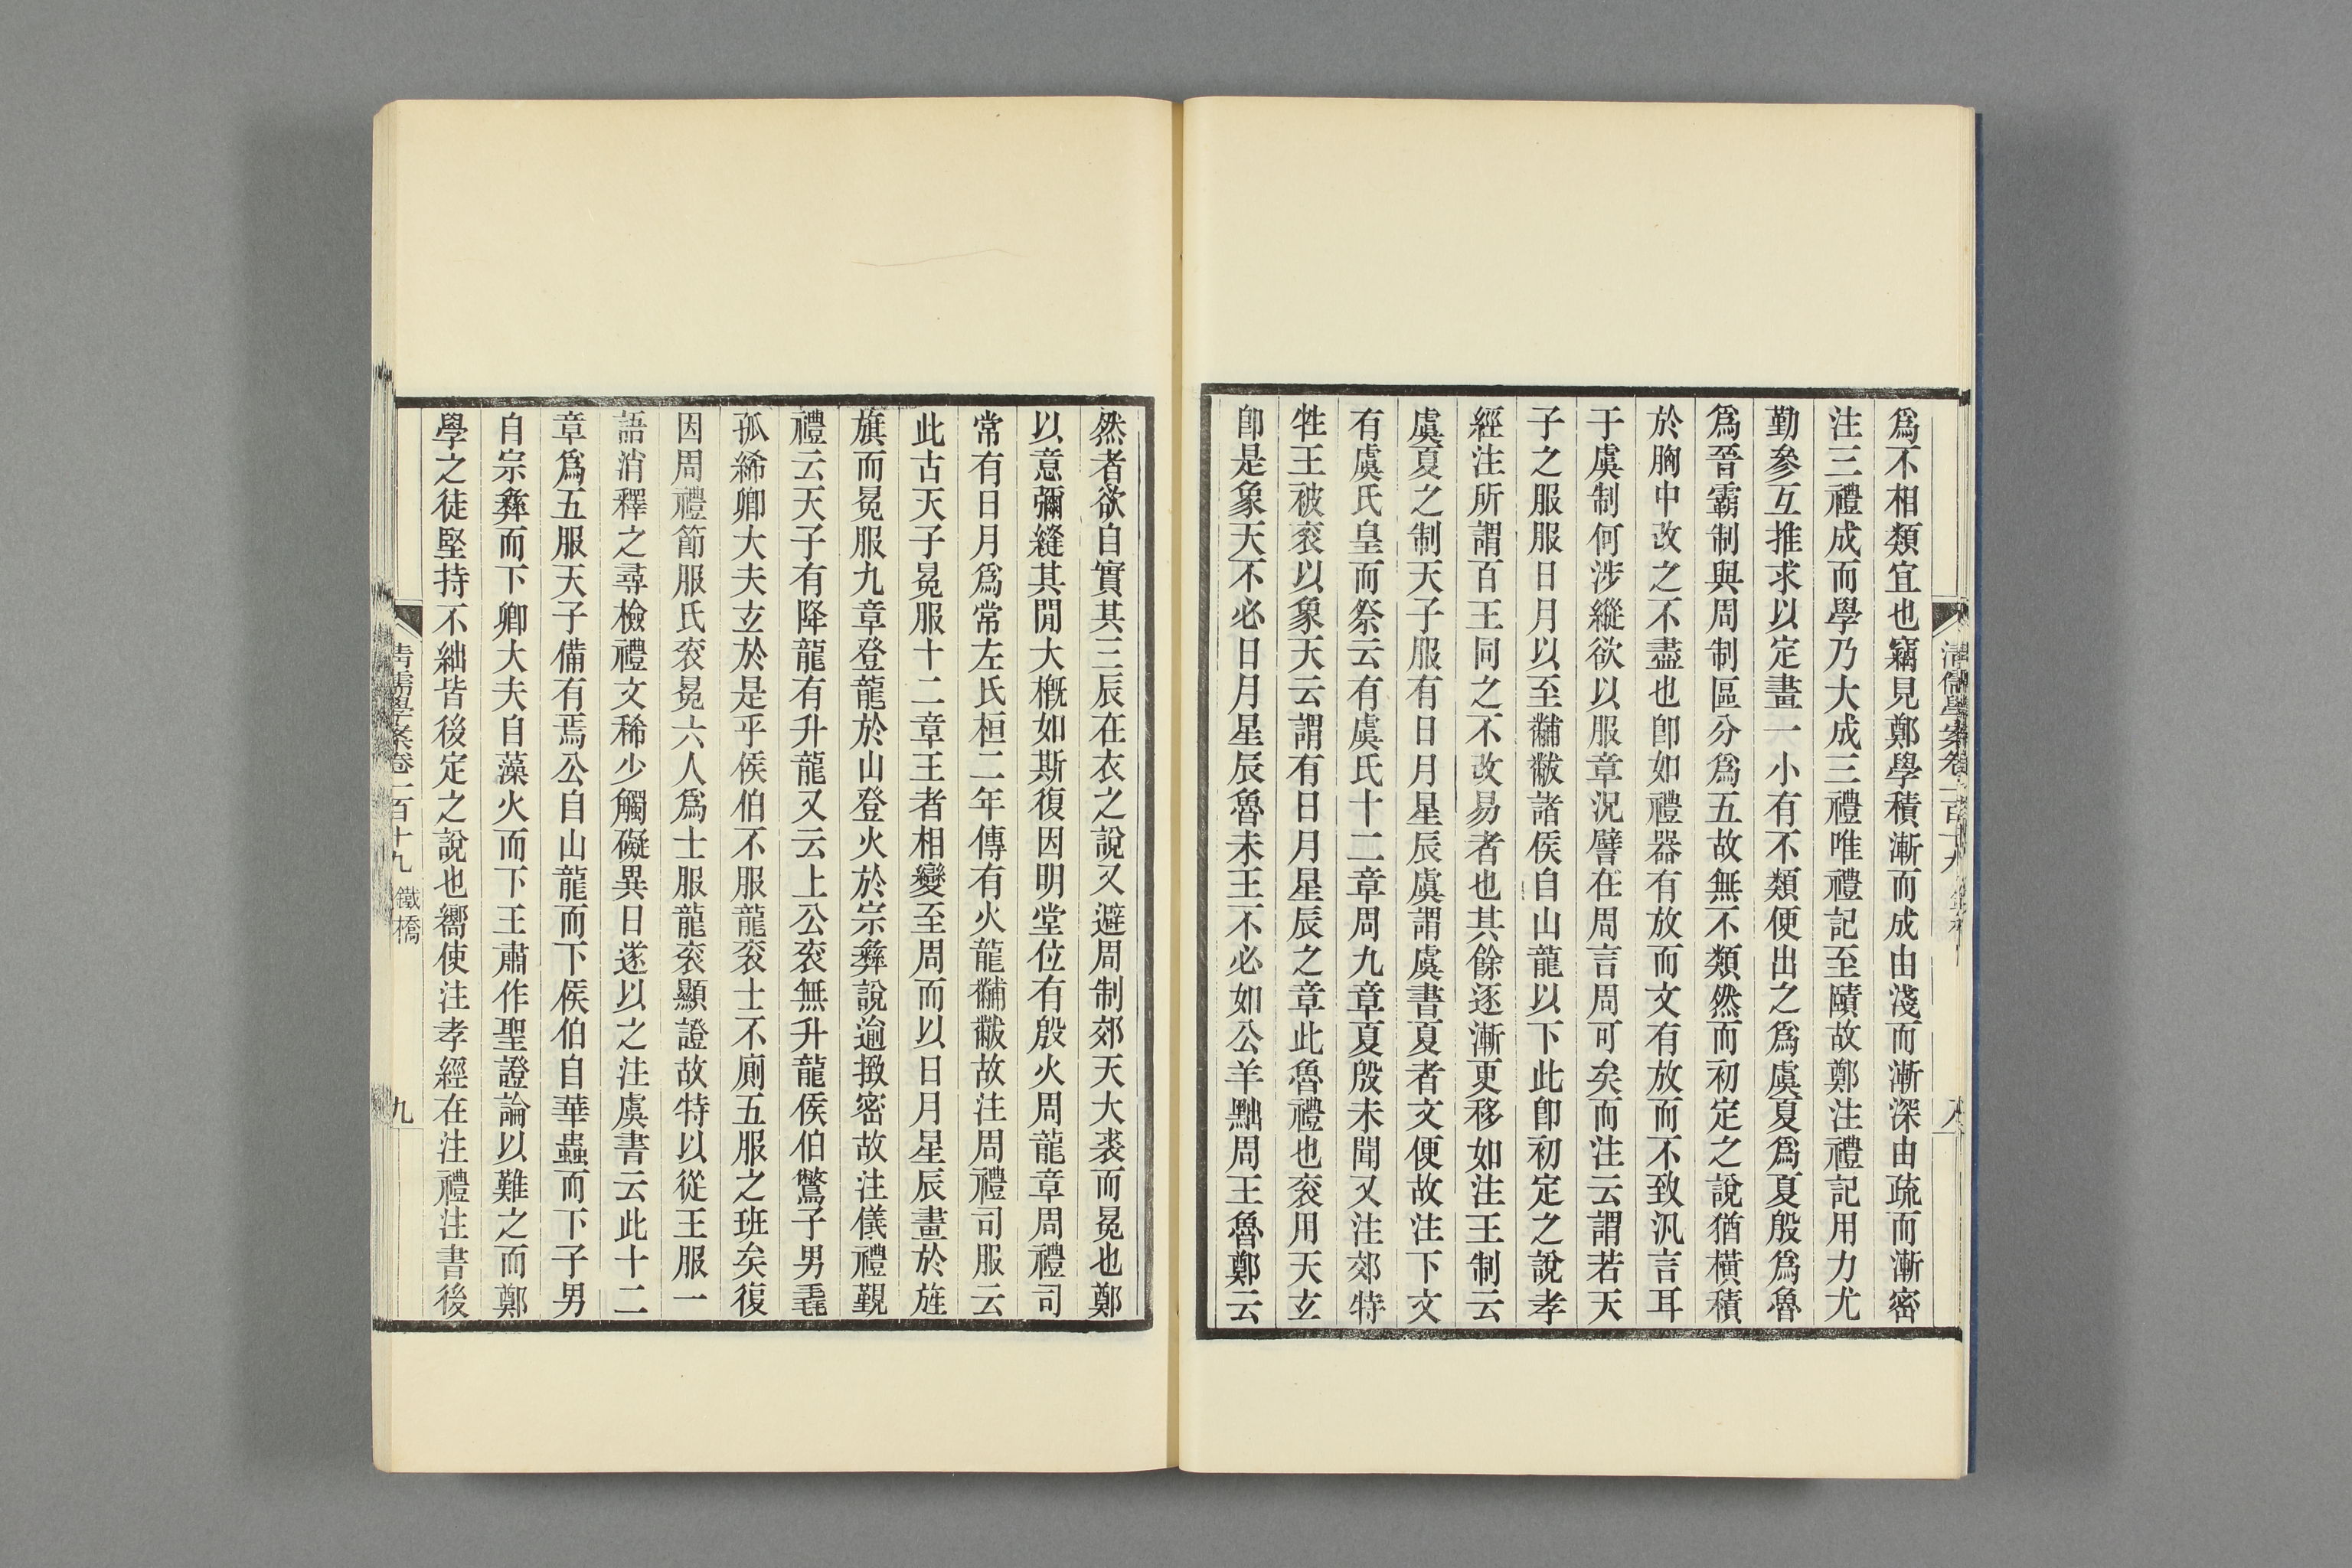 爲不相類宜也竊見鄭學積漸而成由淺而漸深由疏而漸密
注三禮成而學乃大成三禮唯禮記至賾故鄭注禮記用力尤
勤參互推求以定畫一小有不類便出之爲虞夏爲夏殷爲魯
爲晉霸制與周制區分爲五故無不類然而初定之說猶橫積
於胸中改之不盡也卽如禮器有放而文有放而不致汎言耳
于虞制何涉縱欲以服章況譬在周言周可矣而注云謂若天
子之服服日月以至黼黻諸侯自山龍以下此卽初定之說孝
經注所謂百王同之不改易者也其餘逐漸更移如注王制云
虞夏之制天子服有日月星辰虞謂虞書夏者文便故注下文
有虞氏皇而祭云有虞氏十二章周九章夏殷未聞又注郊特
牲王被衮以象天云謂有日月星辰之章此魯禮也衮用天玄
卽是象天不必日月星辰魯未王不必如公羊黜周王魯鄭云
然者欲自實其三辰在衣之說又避周制郊天大裘而冕也鄭
以意彌縫其閒大槪如斯復因明堂位有殷火周龍章周禮司
常有日月爲常左氏桓二年傳有火龍黼黻故注周禮司服云
此古天子冕服十二章王者相變至周而以日月星辰畫於旌
旗而冕服九章登龍於山登火於宗彝說逾緻密故注儀禮覲
禮云天子有降龍有升龍又云上公衮無升龍侯伯鷩子男毳
孤絺卿大夫玄於是乎侯伯不服龍衮士不廁五服之班矣復
因周禮節服氏衮冕六人爲士服龍衮顯證故特以從王服一
語消釋之尋檢禮文稀少觸礙異日遂以之注虞書云此十二
章爲五服天子備有焉公自山龍而下侯伯自華蟲而下子男
自宗彝而下卿大夫自藻火而下王肅作聖證論以難之而鄭
學之徒堅持不絀皆後定之說也嚮使注孝經在注禮注書後
清儒學案卷一百十九 鐵橋
九